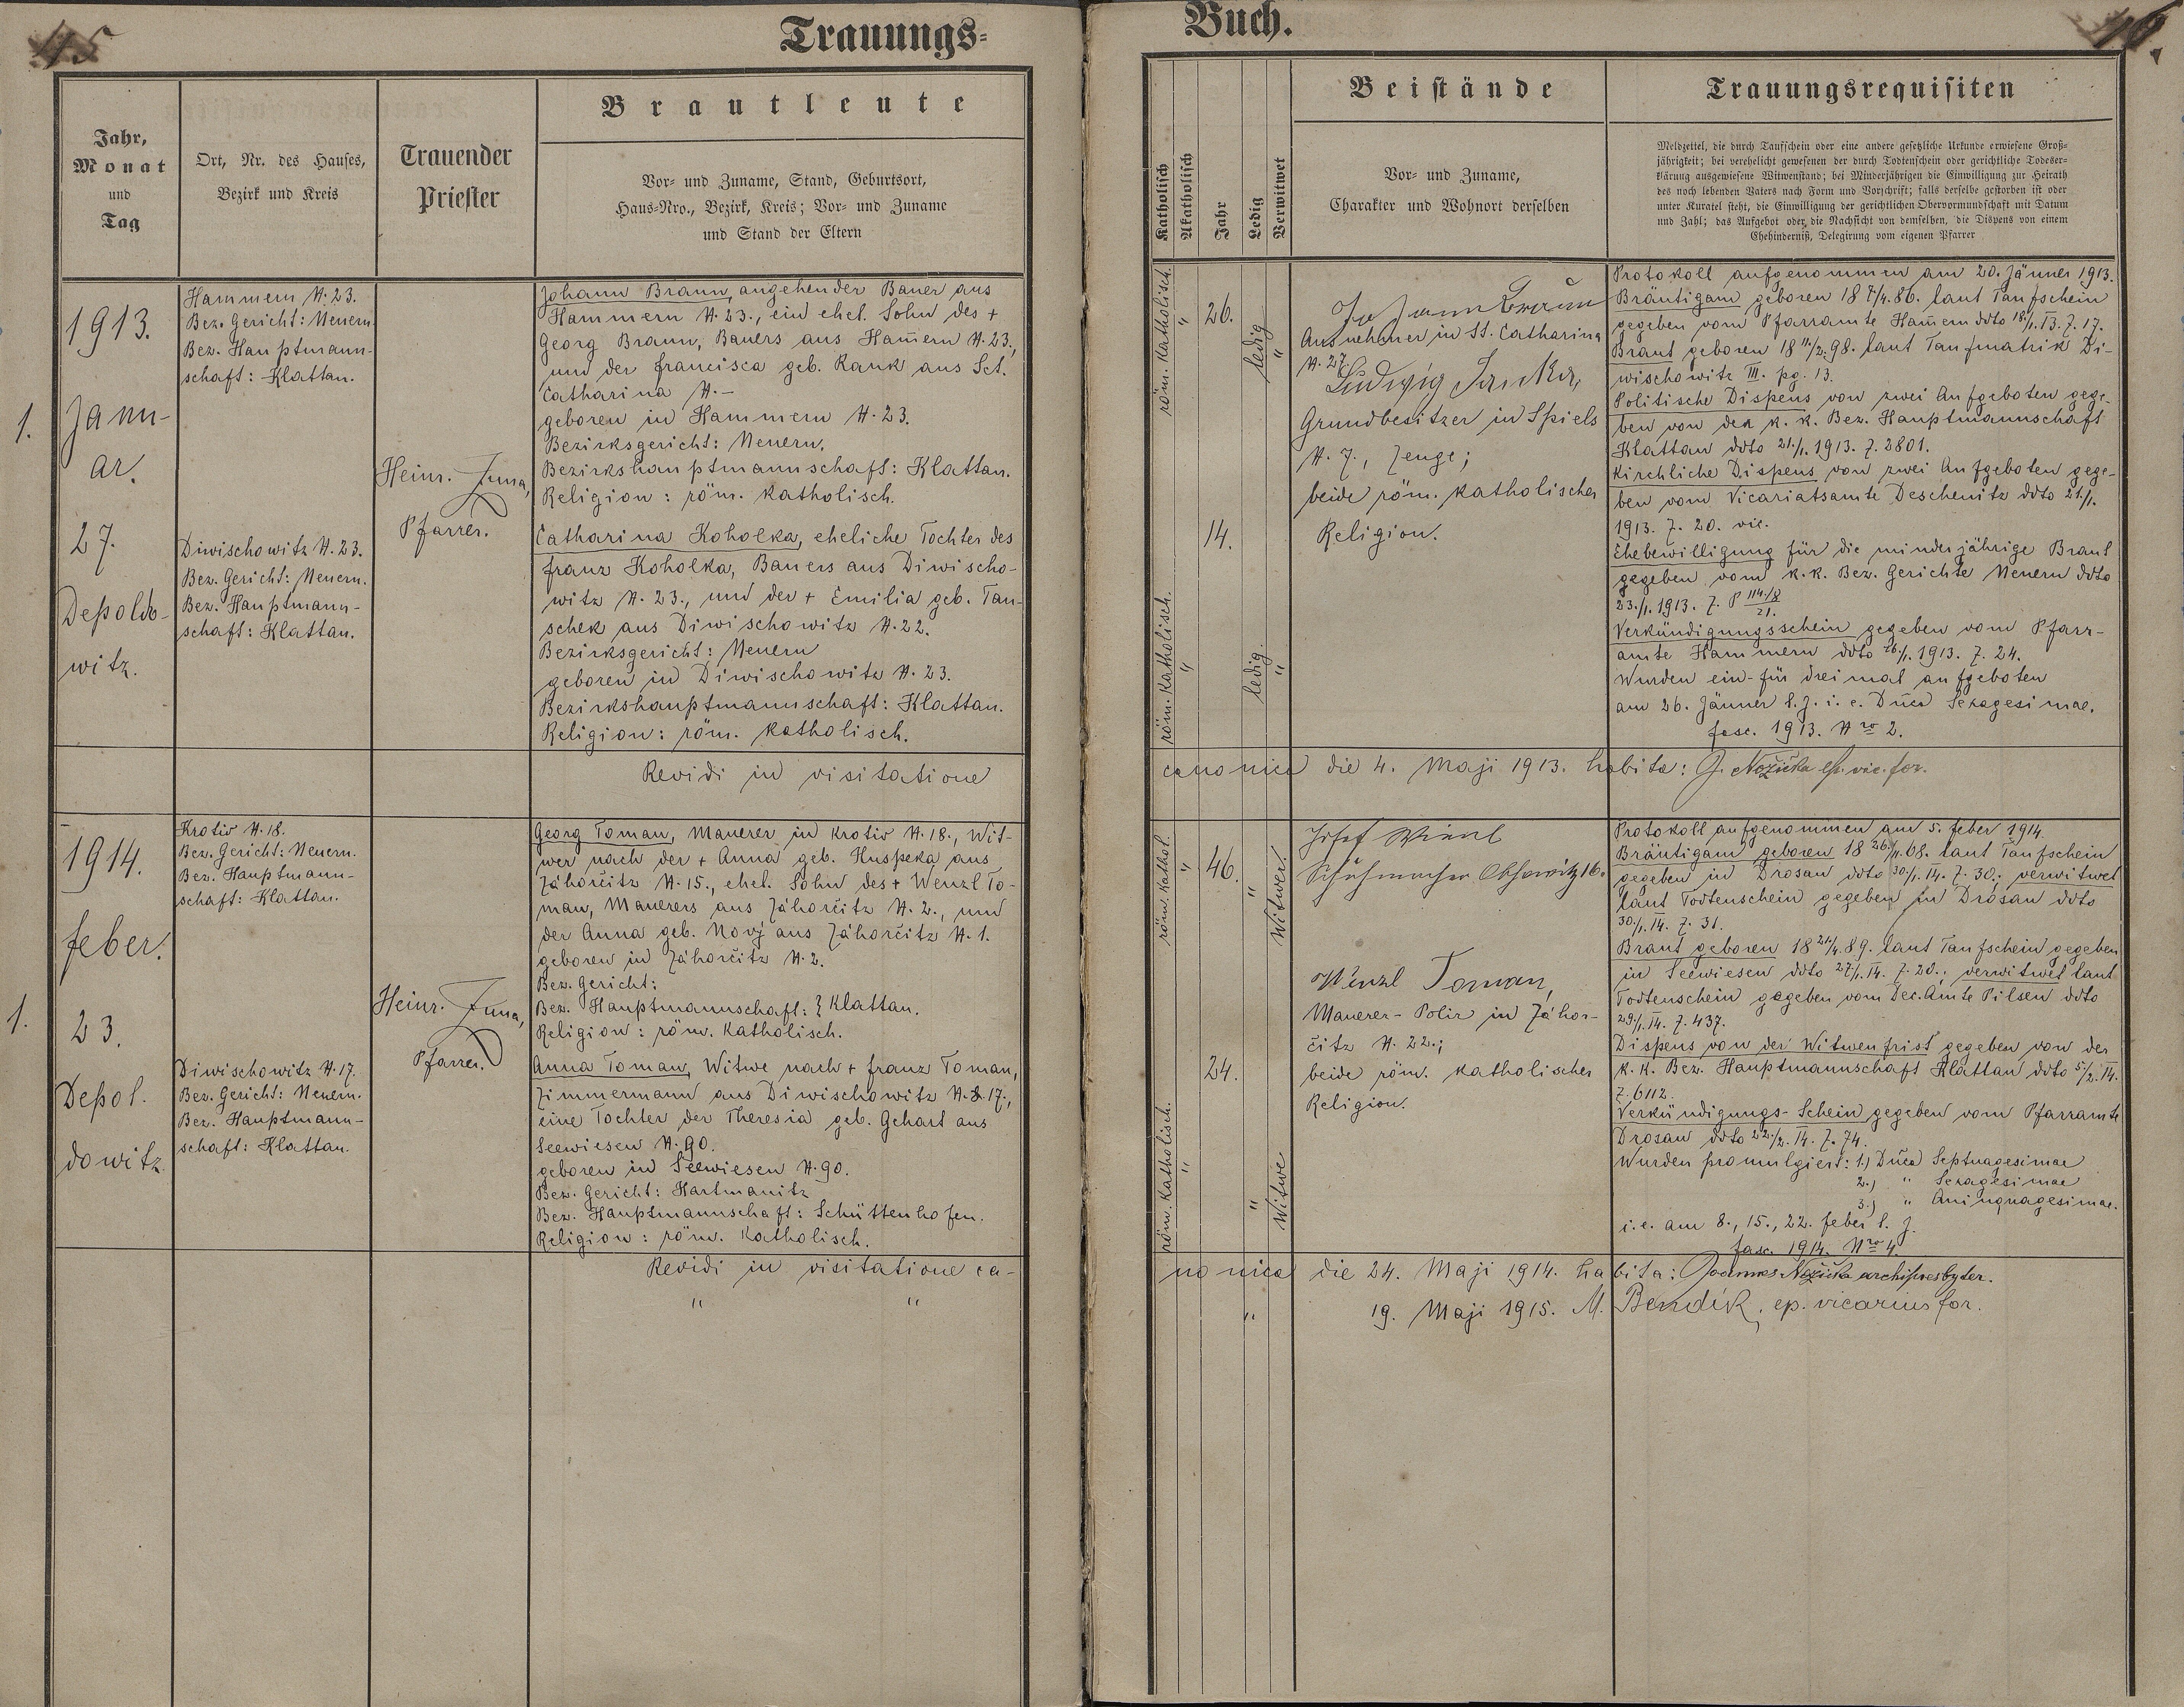 45
Trauungs-
Jahr,
Monat
und
Tag
Ort, Nr. des Hauses,
Bezirk und Kreis
Trauender
Priester
Brautleute
Vor- und Zuname, Stand, Geburtsort,
Haus-Nro., Bezirk, Kreis; Vor- und Zuname
und Stand der Eltern
1.
1913.
Janu-
ar.
27.
Depoldo-
witz.
Hammern N. 23.
Bez. Gericht: Neuern.
Bez. Hauptmann-
schaft: Klattau.
Diwischowitz N. 23.
Bez. Gericht: Neuern.
Bez. Hauptmann-
schaft: Klattau.
Heinr. Juna,
Pfarrer.
Johann Braun, angehender Bauer aus
Hammern N. 23., ein ehel. Sohn des +
Georg Braun, Bauers aus Ham̄ern N. 23.,
und der Francisca geb. Rank aus Sct.
Catharina N. —
geboren in Hammern N. 23.
Bezirksgericht: Neuern.
Bezirkshauptmannschaft: Klattau.
Religion: röm. katholisch.
Catharina Koholka, eheliche Tochter des
Franz Koholka, Bauers aus Diwischo-
witz N. 23., und der + Emilia geb. Tau-
schek aus Diwischowitz N. 22.
Bezirksgericht: Neuern
geboren in Diwischowitz N. 23.
Bezirkshauptmannschaft: Klattau.
Religion: röm. katholisch.
Revidi in visitatione
1.
1914.
Feber.
23.
Depol-
dowitz.
Krotiv N. 18.
Bez. Gericht: Neuern.
Bez. Hauptmann-
schaft: Klattau.
Diwischowitz N. 17.
Bez. Gericht: Neuern.
Bez. Hauptmann-
schaft: Klattau.
Heinr. Juna,
Pfarrer.
Georg Toman, Maurer in Krotiv N. 18., Wit-
wer nach der + Anna geb. Huspeka aus
Záhorčitz N. 15., ehel. Sohn des + Wenzl To-
man, Maurers aus Záhorčitz N. 2., und
der Anna geb. Novj aus Záhorčitz N. 1.
geboren in Záhorčitz N. 2.
Bez. Gericht:
Bez. Hauptmannschaft: } Klattau.
Religion: röm. katholisch.
Anna Toman, Witwe nach + Franz Toman,
Zimmermann aus Diwischowitz N. 17.,
eine Tochter der Theresia geb. Gehart aus
Seewiesen N. 90.
geboren in Seewiesen N. 90.
Bez. Gericht: Hartmanitz
Bez. Hauptmannschaft: Schüttenhofen.
Religion: röm. katholisch.
Revidi in visitatione ca-
" "
46.
Buch.
Katholisch
Akatholisch
Jahr
Ledig
Verwitwet
Beistände
Vor- und Zuname,
Charakter und Wohnort derselben
Trauungsrequisiten
Meldzettel, die durch Taufschein oder eine andere gesetzliche Urkunde erwiesene Groß-
jährigkeit; bei verehelicht gewesenen der durch Todtenschein oder gerichtliche Todeser-
klärung ausgewiesene Witwenstand; bei Minderjährigen die Einwilligung zur Heirath
des noch lebenden Vaters nach Form und Vorschrift; falls derselbe gestorben ist oder
unter Kuratel steht, die Einwilligung der gerichtlichen Obervormundschaft mit Datum
und Zahl; das Aufgebot oder die Nachsicht von demselben, die Dispens von einem
Ehehinderniß, Delegirung vom eigenen Pfarrer
röm. katholisch.
"
26.
ledig
"
röm. katholisch.
"
14.
ledig.
"
Johann Braun
Ausnehmer in St. Catharina
N. 27
Ludwig
Grundbesitzer in Spiels
N. 7., Zeuge;
beide röm. katholischer
Religion.
Protokoll aufgenommen am 20. Jänner 1913.
Bräutigam geboren 18 7/4. 86. laut Taufschein
gegeben vom Pfarramte Ham̄ern ddto 18/1. 13. Z. 17.
Braut geboren 18 11/2. 98. laut Taufmatrik Di-
wischowitz III. pg. 13.
Politische Dispens von zwei Aufgeboten gege-
ben von der k. k. Bez. Hauptmannschaft
Klattau ddto 21./1. 1913. Z. 2801.
Kirchliche Dispens von zwei Aufgeboten gege-
ben vom Vicariatsamte Deschenitz ddto 21./1.
1913. Z. 20. vic.
Ehebewilligung für die minderjährige Braut
gegeben vom k. k. Bez. Gerichte Neuern ddto
23./1. 1913. Z. P 114./8 21.
Verkündigungsschein gegeben vom Pfarr-
amte Hammern ddto 26./1. 1913. Z. 24.
Wurden ein- für dreimal aufgeboten
am 26. Jänner l. J. i. e. Dn̄ca Sexagesimae.
fasc. 1913. Nro 2.
canonica die 4. Maji 1913. habita: J. Nožička ep. vic. for.
röm. kathol.
"
46.
"
Witwer.
röm. katholisch.
"
24.
"
Witwe
Josef
Schuhmacher 16.
Wenzl Toman,
Maurer-Polir in Záhor-
čitz N. 22.;
beide röm. katholischer
Religion.
Protokoll aufgenommen am 5. Feber 1914.
Bräutigam geboren 18 26./1. 68. laut Taufschein
gegeben in Drosau ddto 30./1. 14. Z. 30.; verwitwet
laut Todtenschein gegeben in Drosau ddto
30./1. 14. Z. 31.
Braut geboren 18 21./4. 89. laut Taufschein gegeben
in Seewiesen ddto 27./1. 14. Z. 20.; verwitwet laut
Todtenschein gegeben vom Dec. Amte Pilsen ddto
29./1. 14. Z. 437.
Dispens von der Witwenfrist gegeben von der
k. k. Bez. Hauptmannschaft Klattau ddto 5./2. 14.
Z. 6112.
Verkündigungs-Schein gegeben vom Pfarramte
Drosau ddto 22./2. 14. Z. 74.
Wurden promulgiert: 1.) Dn̄ca Septuagesimae
2.) " Sexagesimae
3.) " Quinquagesimae.
i. e. am 8., 15., 22. Feber l. J.
fasc. 1914. Nro 4.
nonica die 24. Maji 1914. habita: Joannes Nožička archipresbyter.
" 19. Maji 1915. M. Bendík, ep. vicarius for.